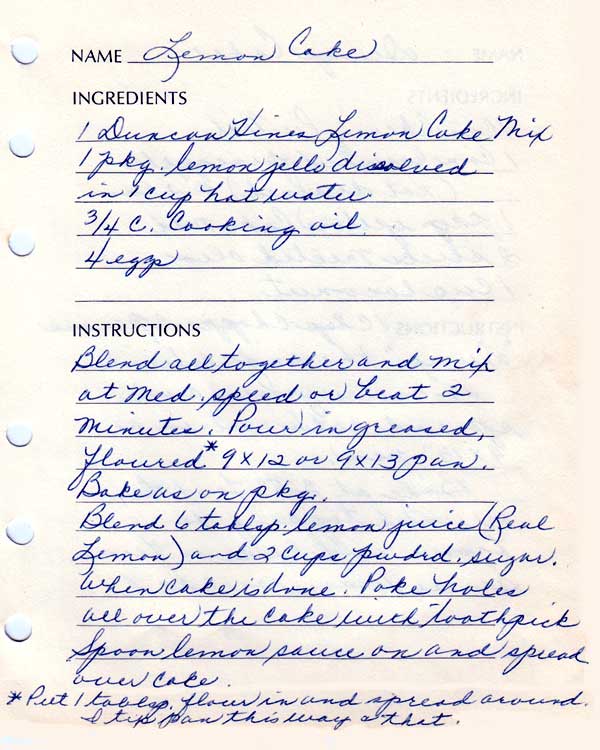 NAME Lemon Cake
INGREDIENTS
1 Duncan Hines Lemon Cake Mix
1 pkg. lemon jello dissolved
in 1 cup hot water
3/4 C. Cooking oil
4 eggs
INSTRUCTIONS
Blend all together and mix
at Med. speed or beat 2
minutes. Pour in greased,
floured* 9x12 or 9x13 pan.
Bake as on pkg.
Blend 6 tablsp. lemon juice (Real
Lemon) and 2 cups pwdrd. sugar.
When cake is done. Poke holes
all over the cake with toothpick
Spoon lemon sauce on and spread
over cake.
* Put 1 tablsp. flour in and spread around.
I tip pan this way & that.